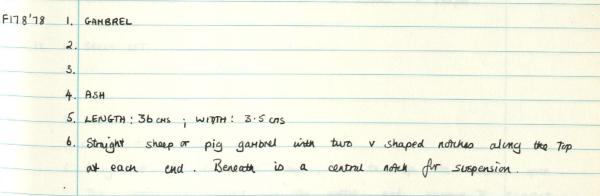 F178'78 1. GAMBREL
2.
3.
4. ASH
5. LENGTH: 36 CMS ; WIDTH: 3.5 CMS
6. Straight sheep or pig gambrel with two v shaped notches along the Top
at each end. Beneath is a central notch for suspension.